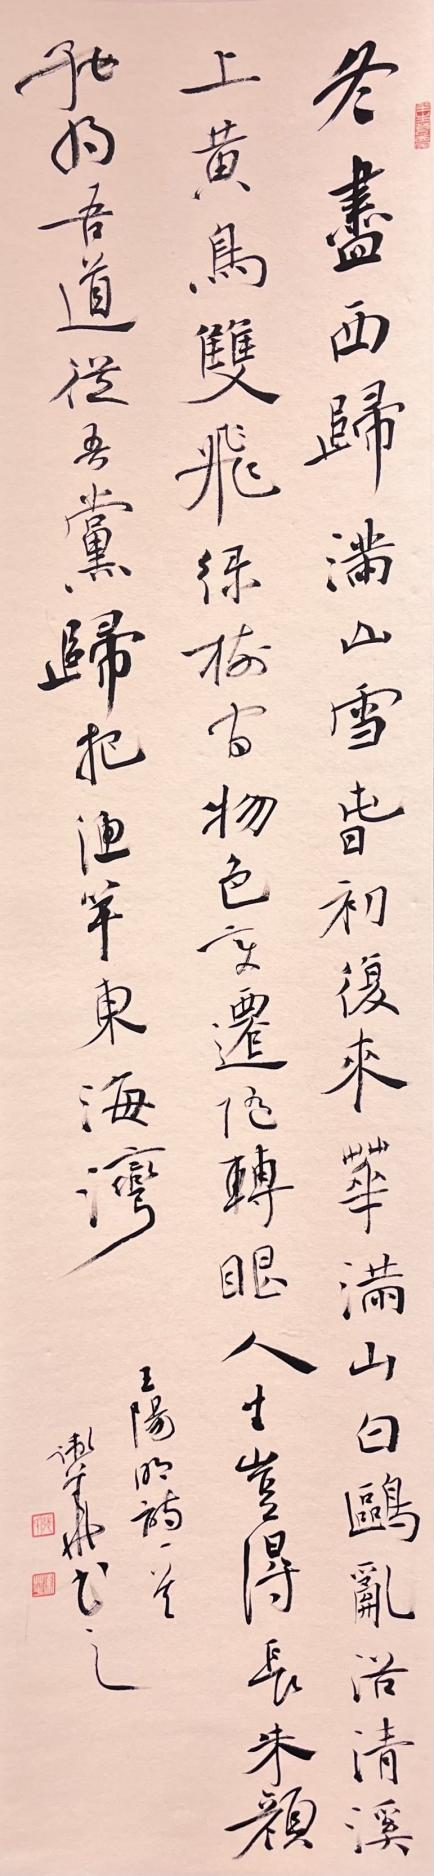 冬盡西歸滿山雪旾初復來華滿山白鷗亂浴清溪
上黃鳥雙飛綠樹間物色變遷隨轉眼人生豈得長朱顏
好將吾道從吾黨歸把漁竿東海灣
王陽明詩一首
書之